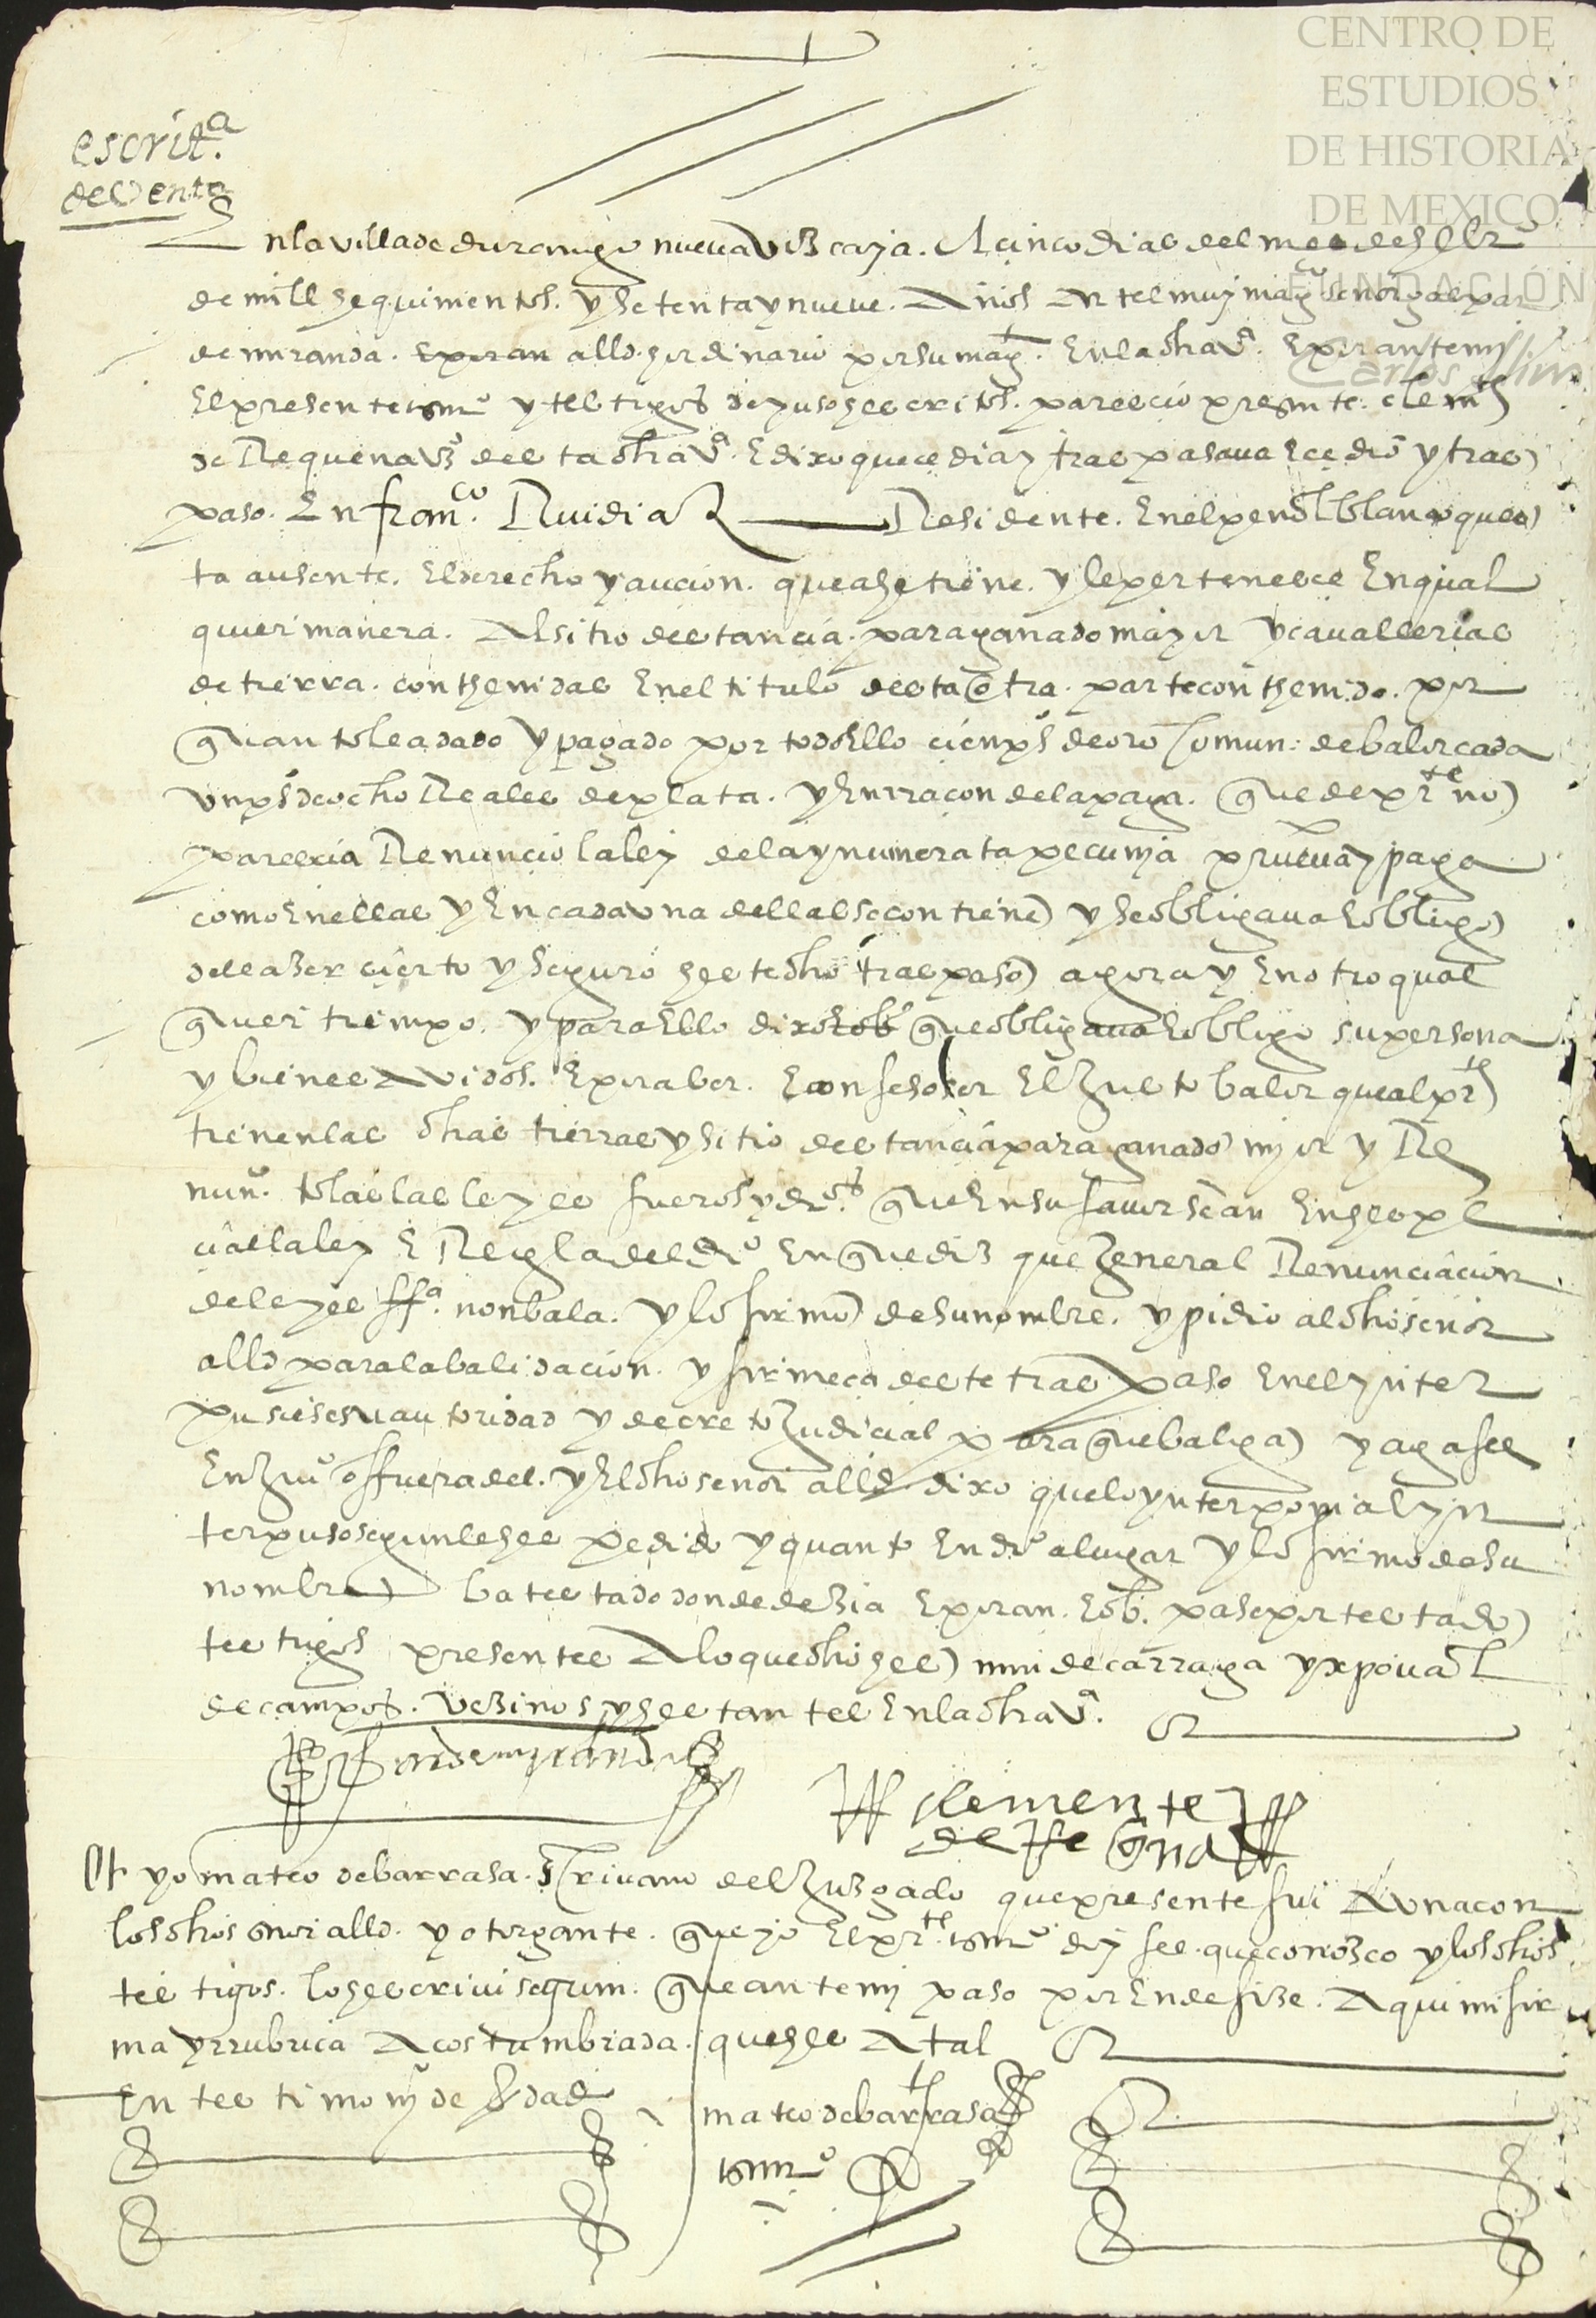 CENTRO DE
ESTUDIOS
DE HISTORIA
DE MEXICO
FUNDACIÓN
Carlos Slim
escritª.
de venta
En la villa de durango nueva vizcaya. A cinco dias del mes de
de mill y quinientos. y setenta y nueve. Años Ante el muy magᶜᵒ señor gaspar
de miranda. E por an alld hordinario por su magᵗ. En la dha vª. E por ante mi
El presente y testigos de yuso escritos. parecio presente. clemᵗᵉ
de Requena vzº desta dha vª. E dixo que cedia y traspasava E cedio y tras
paso. En franᶜᵒ. Ruidiaz Residente. En el peñol blanco que es
ta ausente. El derecho y aucion. que a y tiene. y le pertenesce En qual
quier manera. Al sitio destancia. para ganado mayor y cavallerias
de tierra. conthenidas En el titulo desta otra parte conthenido. por
quanto le a dado y pagado por todo Ello cien pºs de oro comun. de balor cada
un pº de ocho Reales de plata. y En rraçon de la paga. que de prᵗᵉ no
parescia Renuncio la ley de la ynumerata pecunia prueva y paga
como En ellas y En cada una dellas se contiene y se obligava E obligo
de le azer cierto y seguro este dho traspaso agora y En otro qual
quier tiempo. y para Ello dixo Eob que obligava E obligo su persona
y bienes Avidos. E por aber. E confeso ser El Justo balor que al prᵗᵉ
tienen las dhas tierras y sitio destancia para ganado myor y Re
nunº. todas las leyes fueros y drºs que En su favor sean En espe
cial la ley E Regla del drº En que diz que General Renunciacion
de leyes ffª. non bala. y lo firmo de su nombre. y pidio al dho señor
alld para la balidacion. y firmeça deste traspaso En el ynter
pusiese su autoridad y decreto Judicial para que balga y aga fee
En Juiº o fuera del. y El dho señor alld dixo que lo ynterponia E yn
terpuso segun le es pedido y quanto En drº a lugar y lo firmo de su
nombre ba testado donde dezia E por an. Eob. pase por testado
testigos presentes A lo que dho es mrn de carraga y xpoval
de campos. vezinos y estantes En la dha vª.
gaspar de miranda
clemente
de Requena
E yo mateo de barrasa. Escrivano del Juzgado que presente fui A una con
los dhos señor alld. y otorgante. que yo El prᵗᵉ doy fee. que conozco y los dhos
testigos. lo escrivi segun. que ante mi paso por Ende fize. Aqui mi fir
ma y rrubrica Acostumbrada. que es A tal
En testimonº de verdad
mateo de barrasa